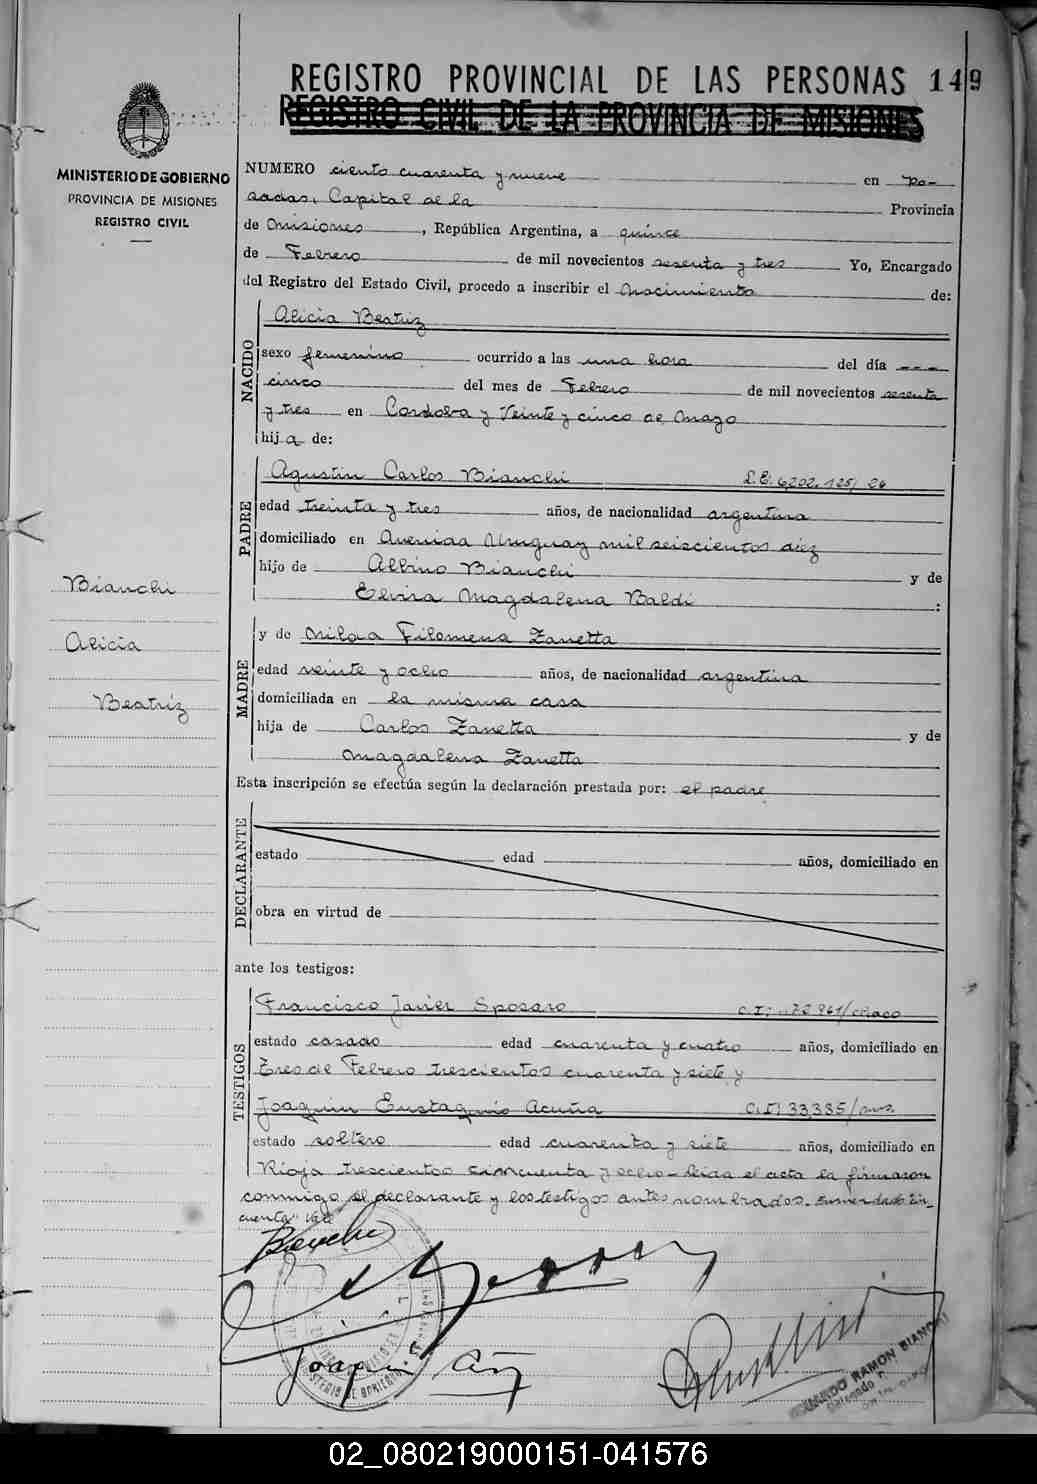 REGISTRO PROVINCIAL DE LAS PERSONAS 149
REGISTRO CIVIL DE LA PROVINCIA DE MISIONES
MINISTERIO DE GOBIERNO
PROVINCIA DE MISIONES
REGISTRO CIVIL
NUMERO ciento cuarenta y nueve en Po-
sadas, Capital de la Provincia
de Misiones, República Argentina, a quince
de Febrero de mil novecientos sesenta y tres Yo, Encargado
del Registro del Estado Civil, procedo a inscribir el Nacimiento de:
NACIDO
Alicia Beatriz
sexo femenino ocurrido a las una hora del día
cinco del mes de Febrero de mil novecientos sesenta
y tres en Cordoba y Veinte y cinco de Mayo
hija de:
PADRE
Agustin Carlos Bianchi L.E. 6,202.125/26
edad treinta y tres años, de nacionalidad argentina
domiciliado en Avenida Uruguay mil seiscientos diez
hijo de Albino Bianchi y de
Elvira Magdalena Baldi :
Bianchi
Alicia
Beatriz
MADRE
y de Nilda Filomena Zanetta
edad veinte y ocho años, de nacionalidad argentina
domiciliada en la misma casa
hija de Carlos Zanetta y de
Magdalena Zanetta
Esta inscripción se efectúa según la declaración prestada por: el padre
DECLARANTE
estado edad años, domiciliado en
obra en virtud de
ante los testigos:
TESTIGOS
Francisco Javier Sposaro C.I. 72.961/Chaco
estado casado edad cuarenta y cuatro años, domiciliado en
Tres de Febrero trescientos cuarenta y siete y
Joaquin Eustaquio Acuña C.I. 33,335/mns.
estado soltero edad cuarenta y siete años, domiciliado en
Rioja trescientos cincuenta y ocho - leida el acta la firmaron
conmigo el declarante y los testigos antes nombrados. Enmendado "cin-
cuenta" Vale
Bianchi
Joaquin
RAMON BIANCHI
Delegado
02_080219000151-041576